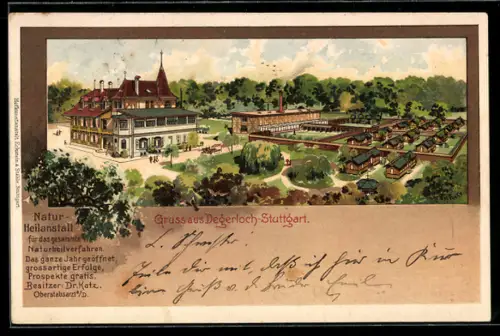 Gruss aus Degerloch-Stuttgart.
Natur-
Heilanstalt
für das gesammte
Naturheilverfahren.
Das ganze Jahr geöffnet
grossartige Erfolge,
Prospekte gratis.
Besitzer: Dr. Katz,
Oberstabsarzt a/D.
L. Schwester
Teile dir mit, dass ich hier in Kur
bin Gruß